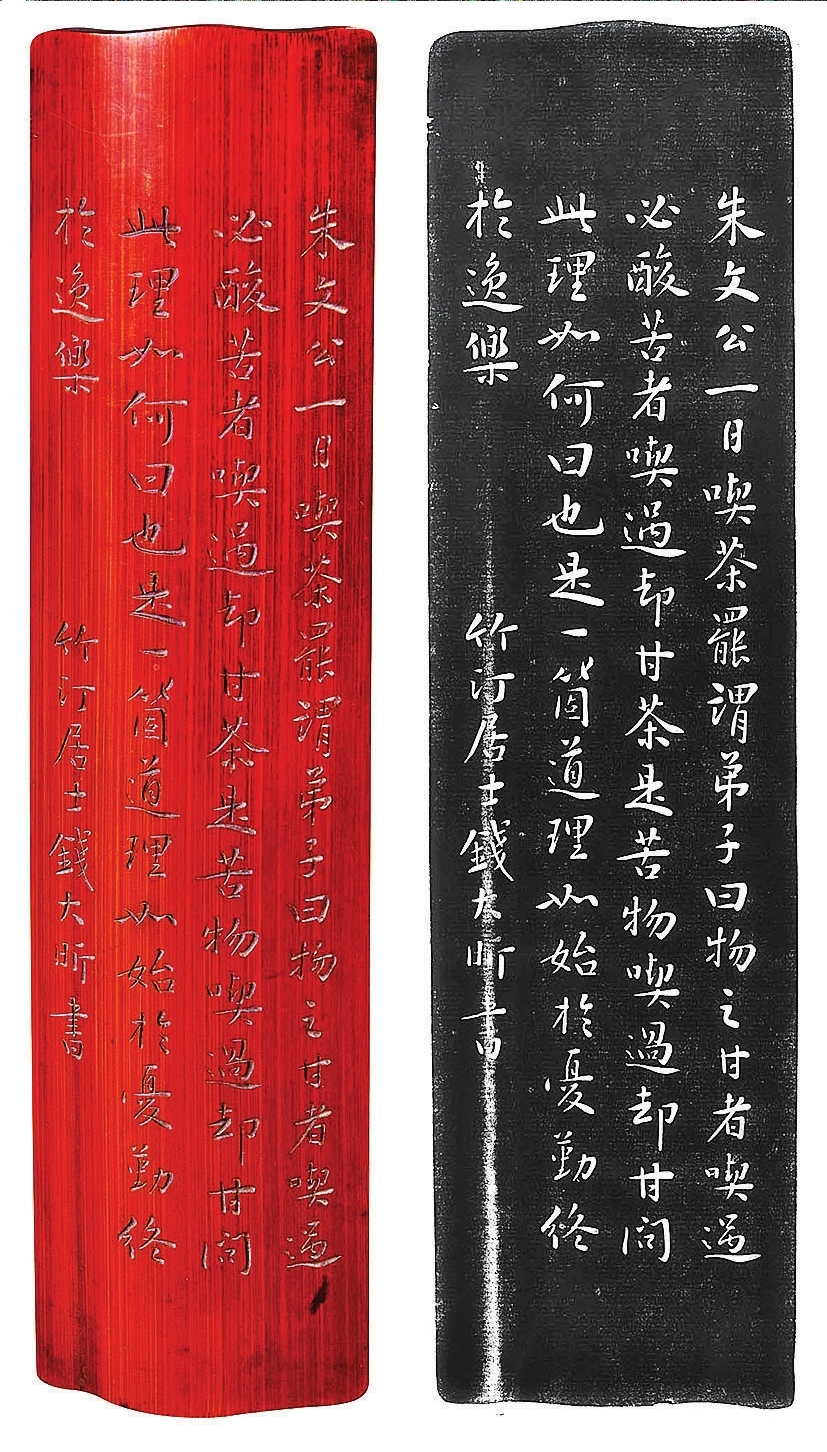 朱文公一日喫茶罷謂弟子曰物之甘者喫過
必酸苦者喫過却甘茶是苦物喫過却甘問
此理如何曰也是一箇道理如始於憂勤終
於逸樂
竹汀居士錢大昕書
朱文公一日喫茶罷謂弟子曰物之甘者喫過
必酸苦者喫過却甘茶是苦物喫過却甘問
此理如何曰也是一箇道理如始於憂勤終
於逸樂
竹汀居士錢大昕書